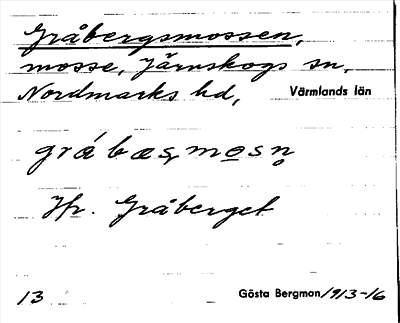 Gråbergsmossen,
mosse, Järnskogs sn,
Nordmarks hd, Värmlands län
gråbæsmosn̥
Jfr. Gråberget
13 Gösta Bergman 1913-16